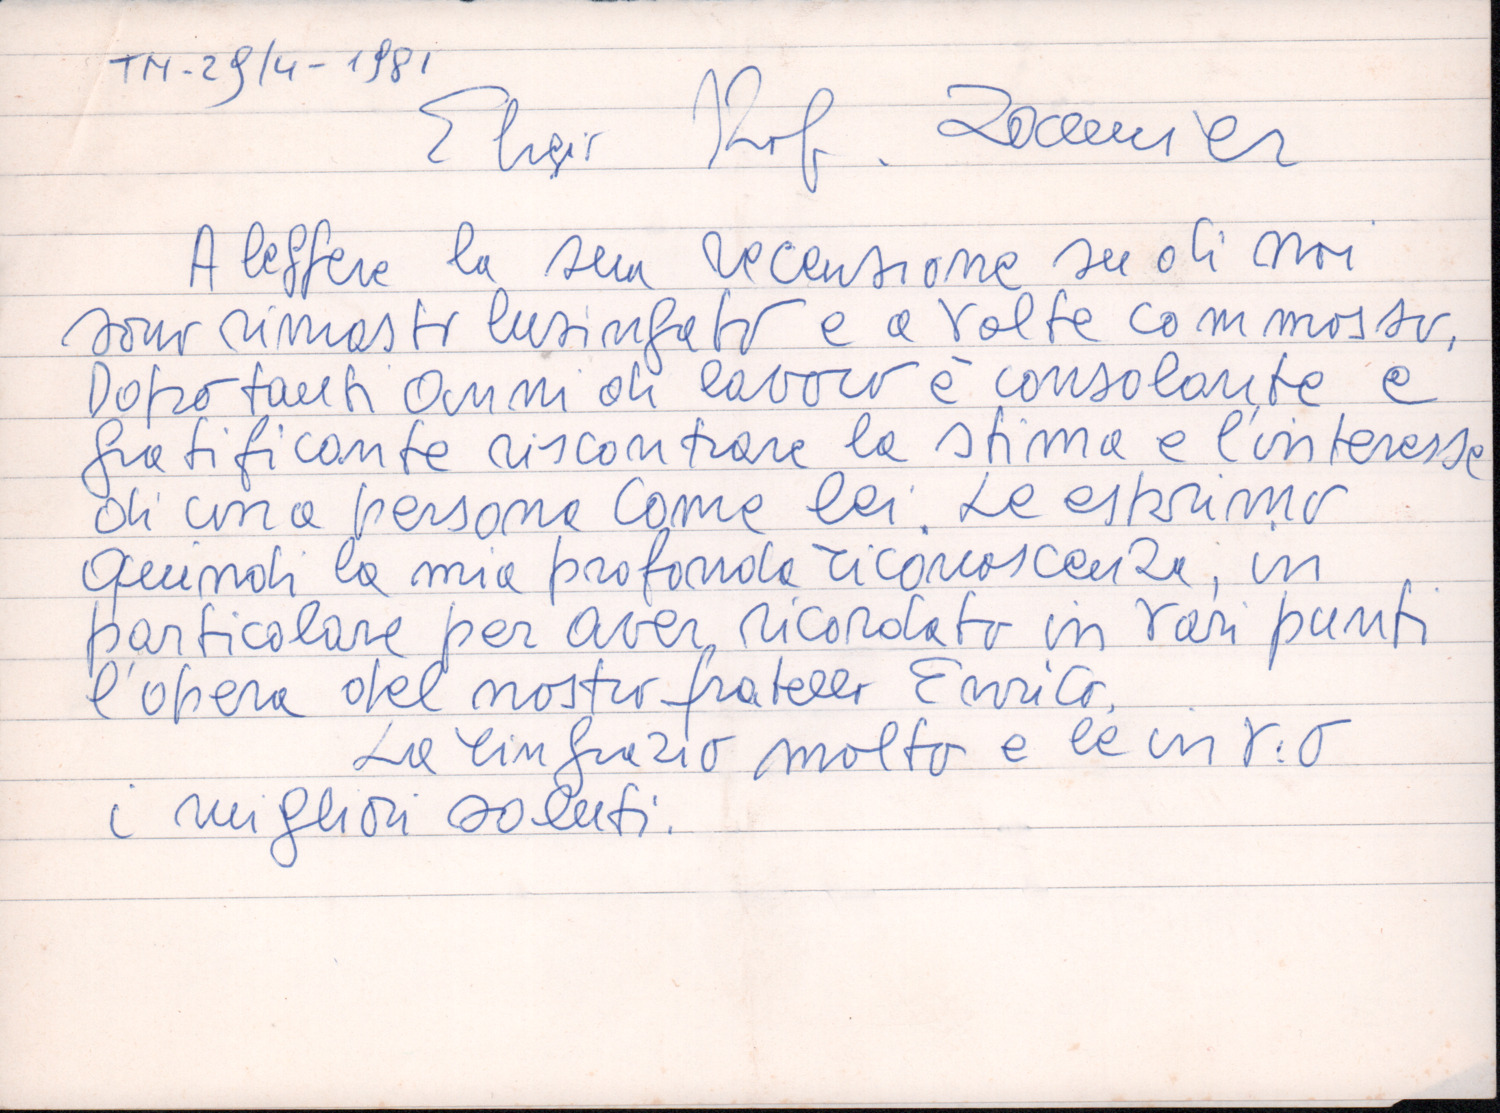 TN-29/4-1981
Egregio Prof. Zocamier
A leggere la sua recensione su di noi
sono rimasto lusingato e a volte commosso,
Dopo tanti anni di lavoro è consolante e
gratificante riscontrare la stima e l'interesse
di una persona come lei. Le esprimo
quindi la mia profonda riconoscenza, in
particolare per aver ricordato in vari punti
l'opera del nostro fratello Enrico.
La ringrazio molto e le invio
i migliori saluti.